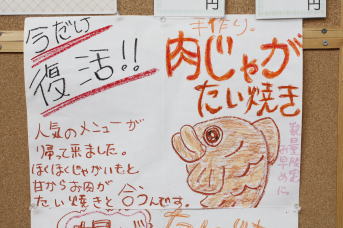 円
円
今だけ
復活!!
手作り。
肉じゃが
たい焼き
人気のメニューが
帰って来ました。
ほくほくじゃがいもと
甘からお肉が
たい焼きと合うんです。
数量限定
お早めに。